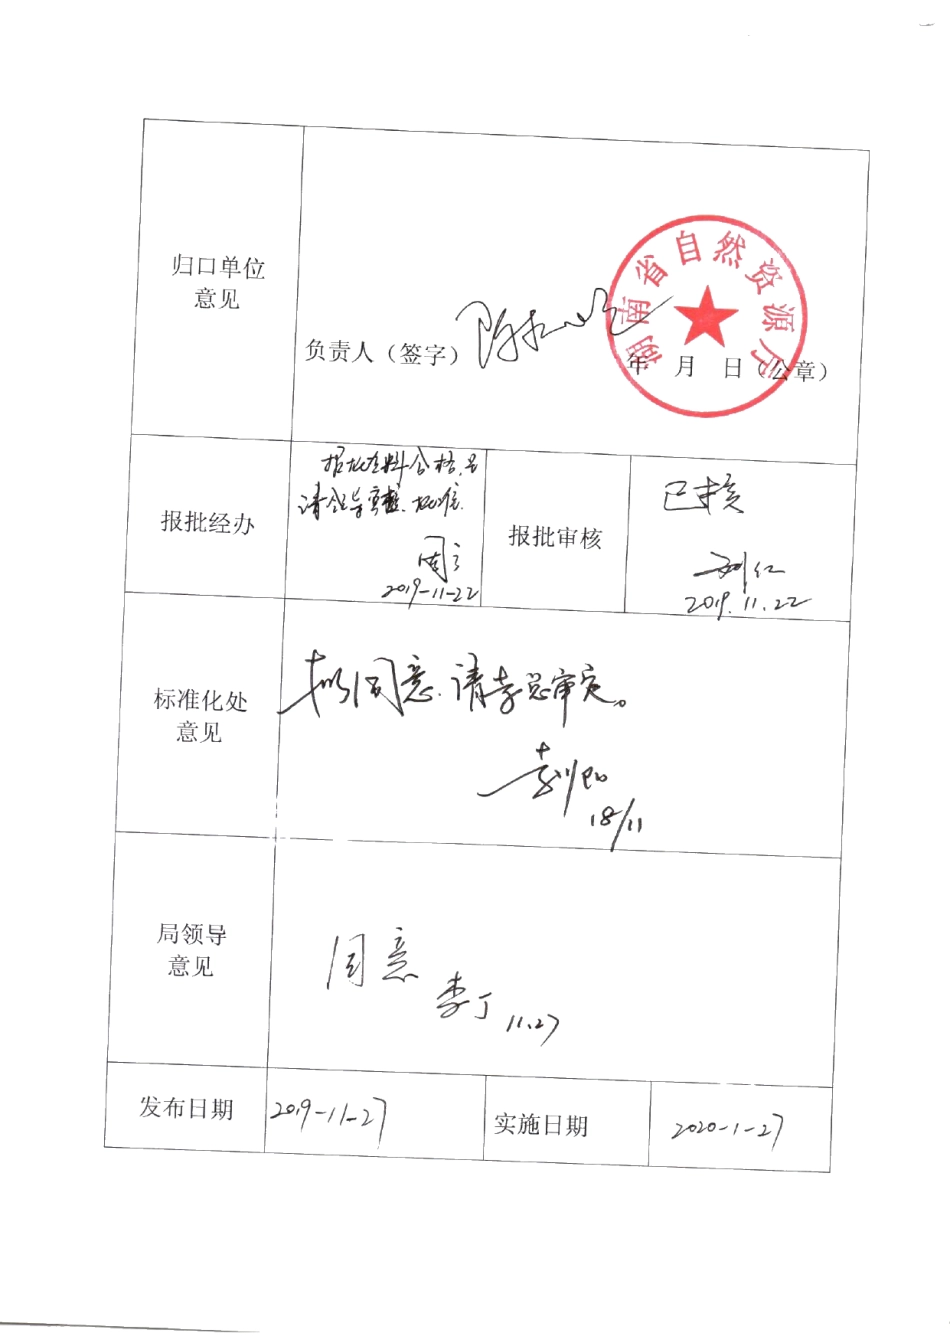 归口单位
意见
负责人（签字）
年 月 日（公章）
湖南省自然资源厅
报批经办
报批材料合格，
请领导审核、批准.
2019-11-22
报批审核
已核
2019.11.22
标准化处
意见
拟同意.请李总审定。
18/11
局领导
意见
同意
李丁 11.27
发布日期
2019-11-27
实施日期
2020-1-27